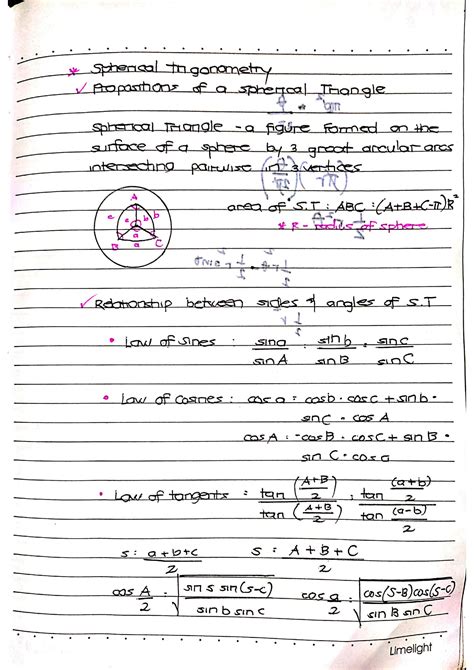 * Spherical Trigonometry
✓ Propositions of a spherical Triangle
Spherical Triangle - a figure formed on the
surface of a sphere by 3 great circular arcs
intersecting pairwise in 3 vertices
A
c b b
a
B a C
area of S.T : ABC : (A+B+C-π)R²
* R - radius of sphere
✓ Relationship between sides & angles of S.T
• Law of sines : sin a / sin A : sin b / sin B : sin c / sin C
• Law of cosines : cos a = cos b · cos c + sin b ·
sin C · cos A
cos A : -cos B · cos C + sin B ·
sin C · cos a
• Law of tangents : tan (A+B / 2) / tan (A+B / 2) : tan (a+b) / 2 / tan (a-b) / 2
s : a+b+c / 2 S : A+B+C / 2
cos A/2 : √ sin s sin(s-c) / sin b sin c cos a/2 : √ cos(S-B)cos(S-C) / sin B sin C
Limelight